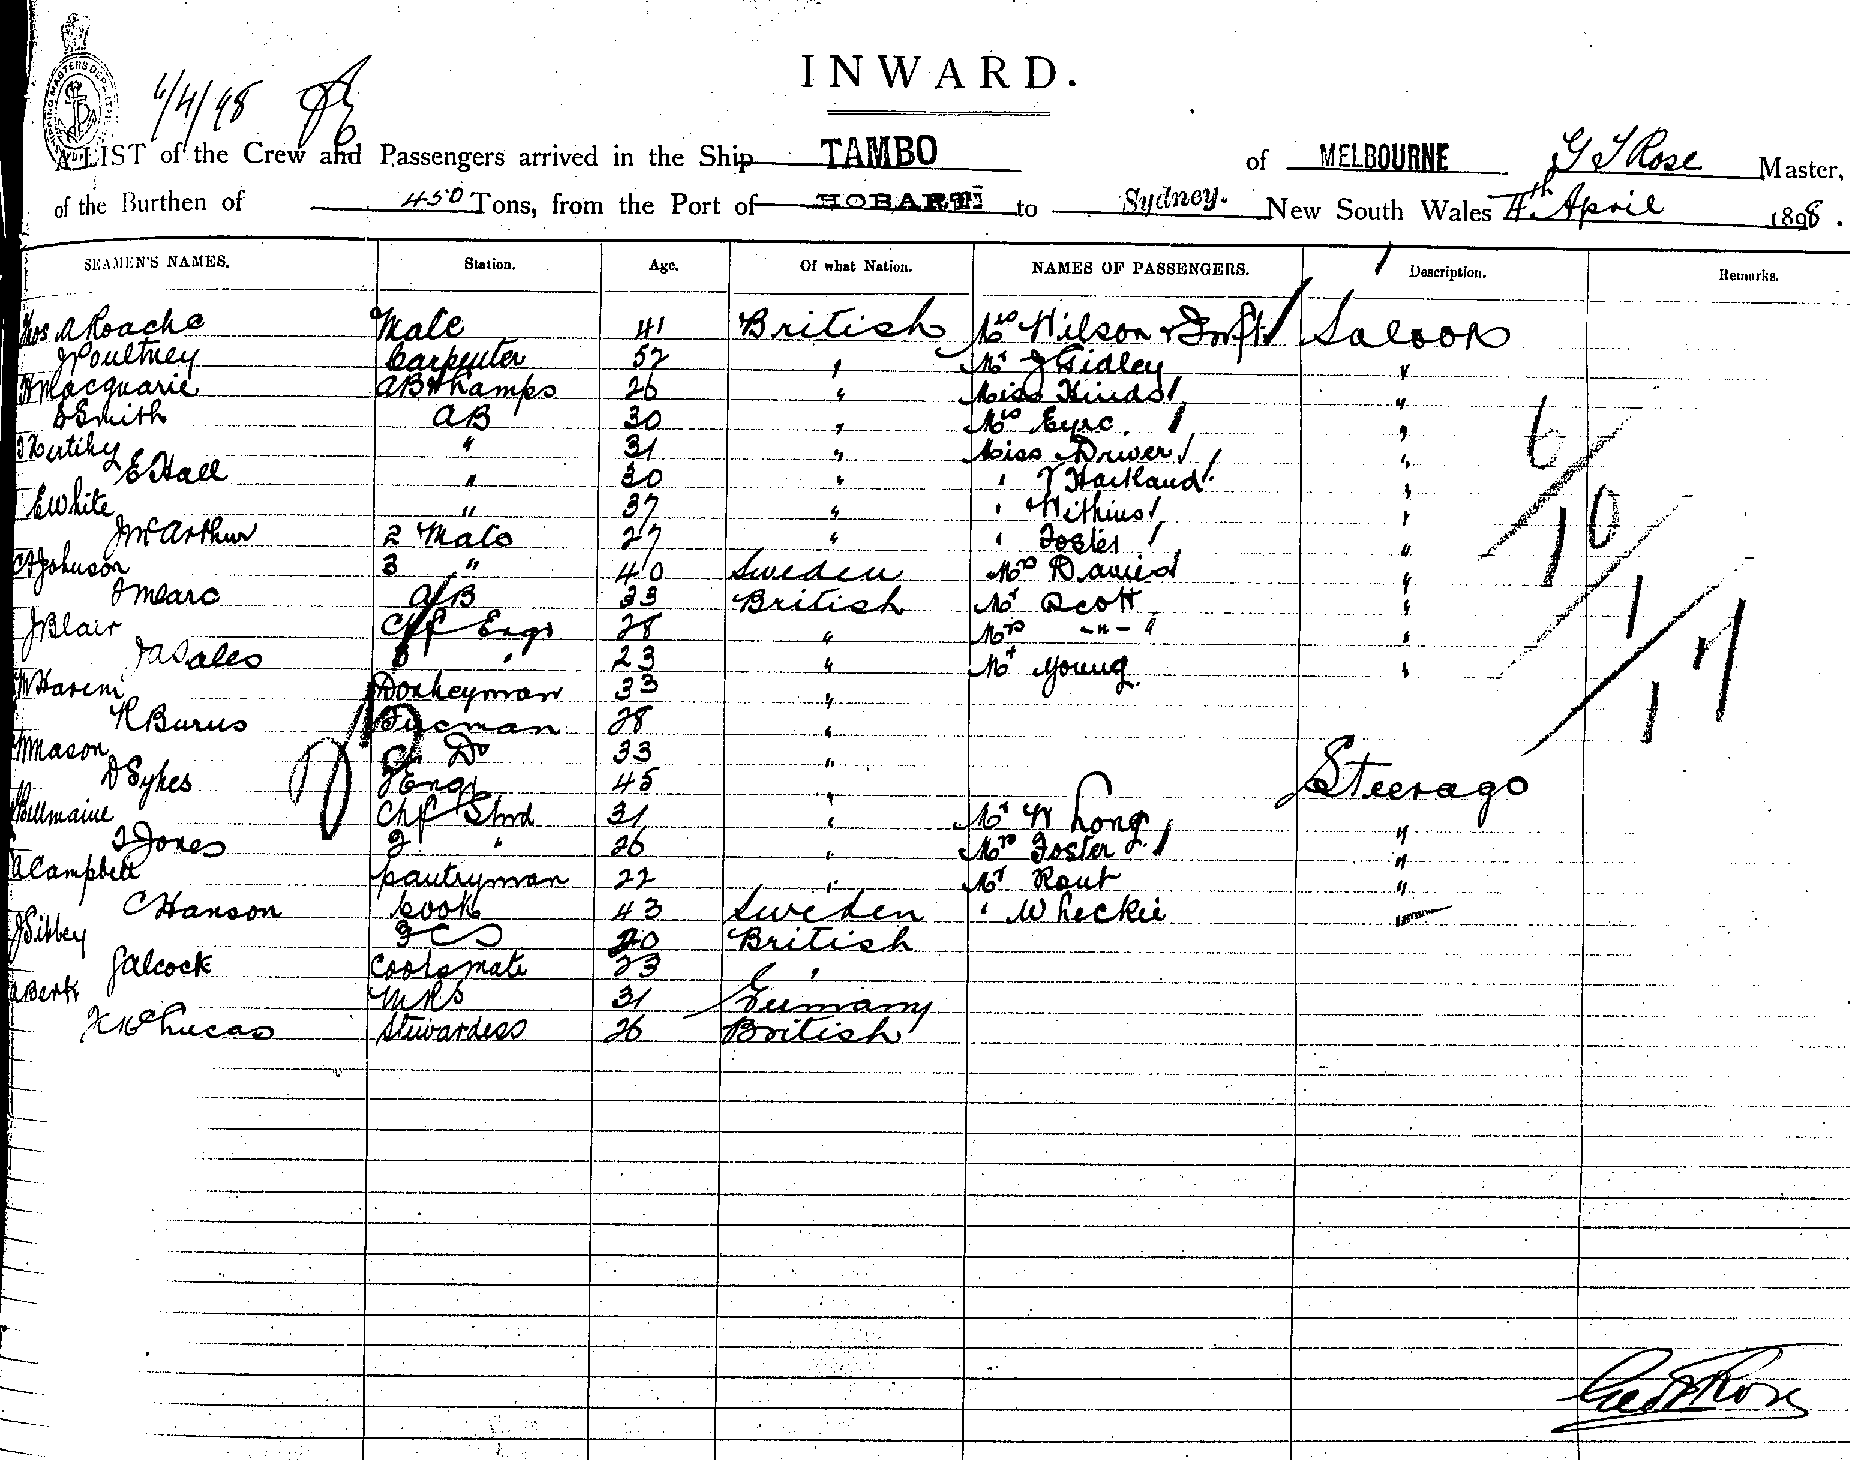 INWARD.
6/4/98
A LIST of the Crew and Passengers arrived in the Ship TAMBO of MELBOURNE G S Rose Master,
of the Burthen of 450 Tons, from the Port of HOBART to Sydney. New South Wales 4th April 1898.
SEAMEN'S NAMES. Station. Age. Of what Nation. NAMES OF PASSENGERS. Description. Remarks.
Thos A Roache Mate 41 British Mrs Wilson & Inft Saloon
J Poultney Carpenter 52 " Mr J Gidley "
H Macquarie AB & Lamps 26 " Miss Hinds "
E Smith AB 30 " Mrs Eyre "
" 31 " Miss Driver "
E Hall " 30 " " T Harkland "
E White " 37 " " Withins "
J McArthur 2 Mate 27 " " Foster "
C Johnson 3 " 40 Sweden Mrs David "
AB 33 British Mr Scott "
J Blair Chf Engr 28 " Mrs -"- " "
23 " Mr Young "
Donkeyman 33 "
R Burns Fireman 28 "
W Mason Do 33 "
D Sykes Engr 45 " Steerage
Chf Stwd 31 " Mr W Long "
J Jones 2 " 26 " Mrs Foster "
A Campbell pantryman 22 " Mr Rout "
C Hanson Cook 43 Sweden " W Leckie
J Sibbey 20 British
G Alcock Cooks mate 23 "
A Berk MRS 31 Germany
K McLucas Stewardess 26 British
6
10
1
1 17
Geo S Rose